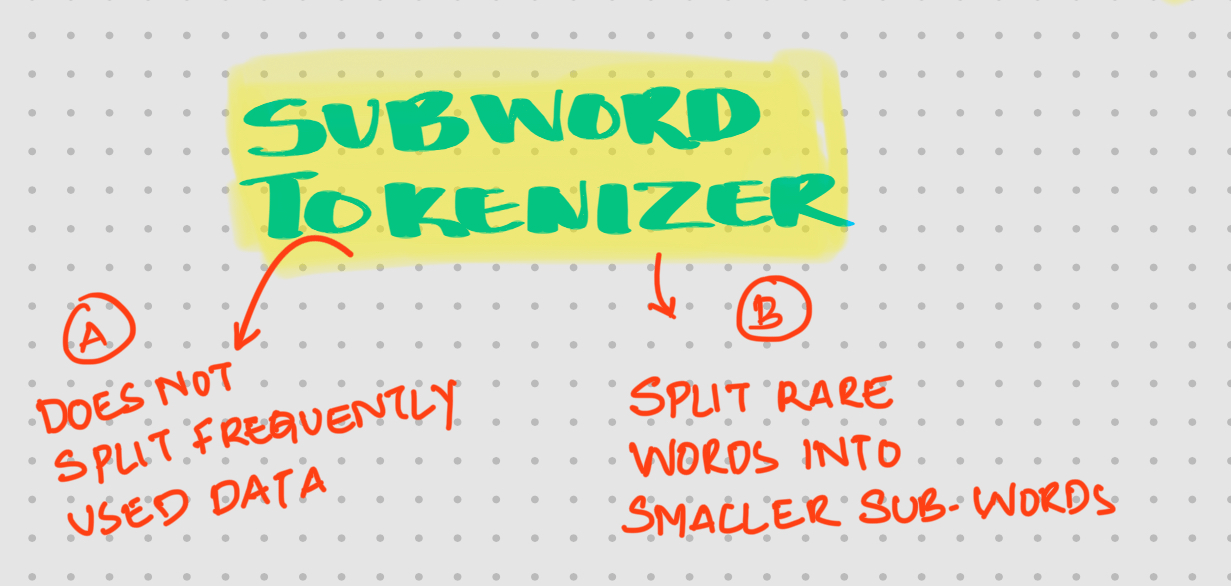 SUBWORD
TOKENIZER
A
DOES NOT
SPLIT FREQUENTLY
USED DATA
B
SPLIT RARE
WORDS INTO
SMALLER SUB-WORDS